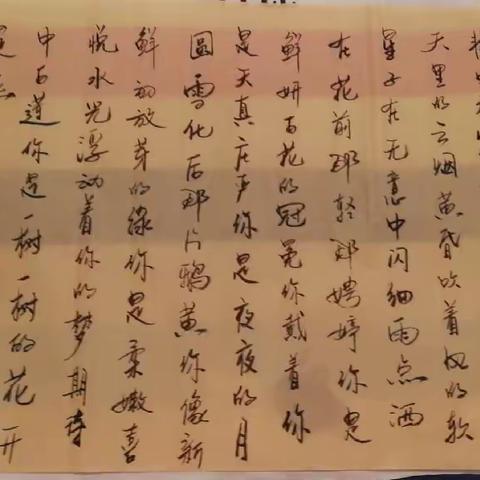 天里的云烟黄昏吹着风的软
星子在无意中闪细雨点洒
在花前那轻那娉婷你是
鲜妍百花的冠冕你戴着你
是天真庄严你是夜夜的月
圆雪化后那片鹅黄你像新
鲜初放芽的绿你是柔嫩喜
悦水光浮动着你的梦期待
中白莲你是一树一树的花开